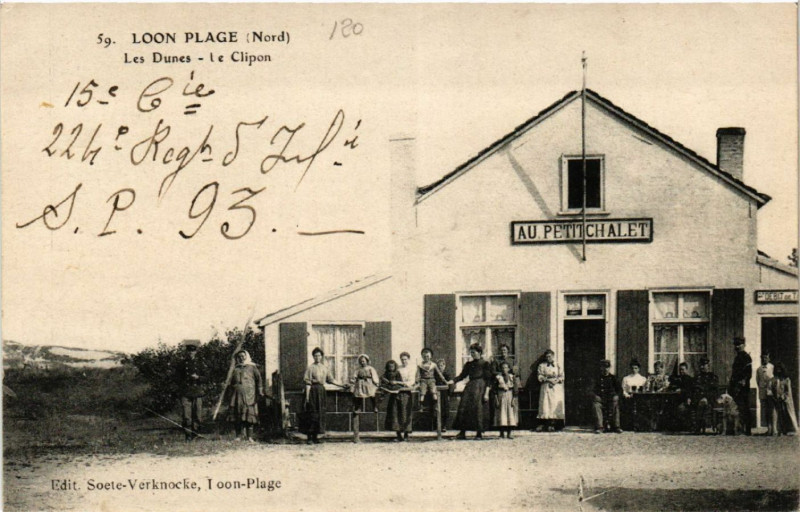 59. LOON PLAGE (Nord)
120
Les Dunes - Le Clipon
15e Cie
224e Regt d'Infie
S. P. 93. —
AU. PETIT CHALET
DEBIT DE
Edit. Soete-Verknocke, Loon-Plage